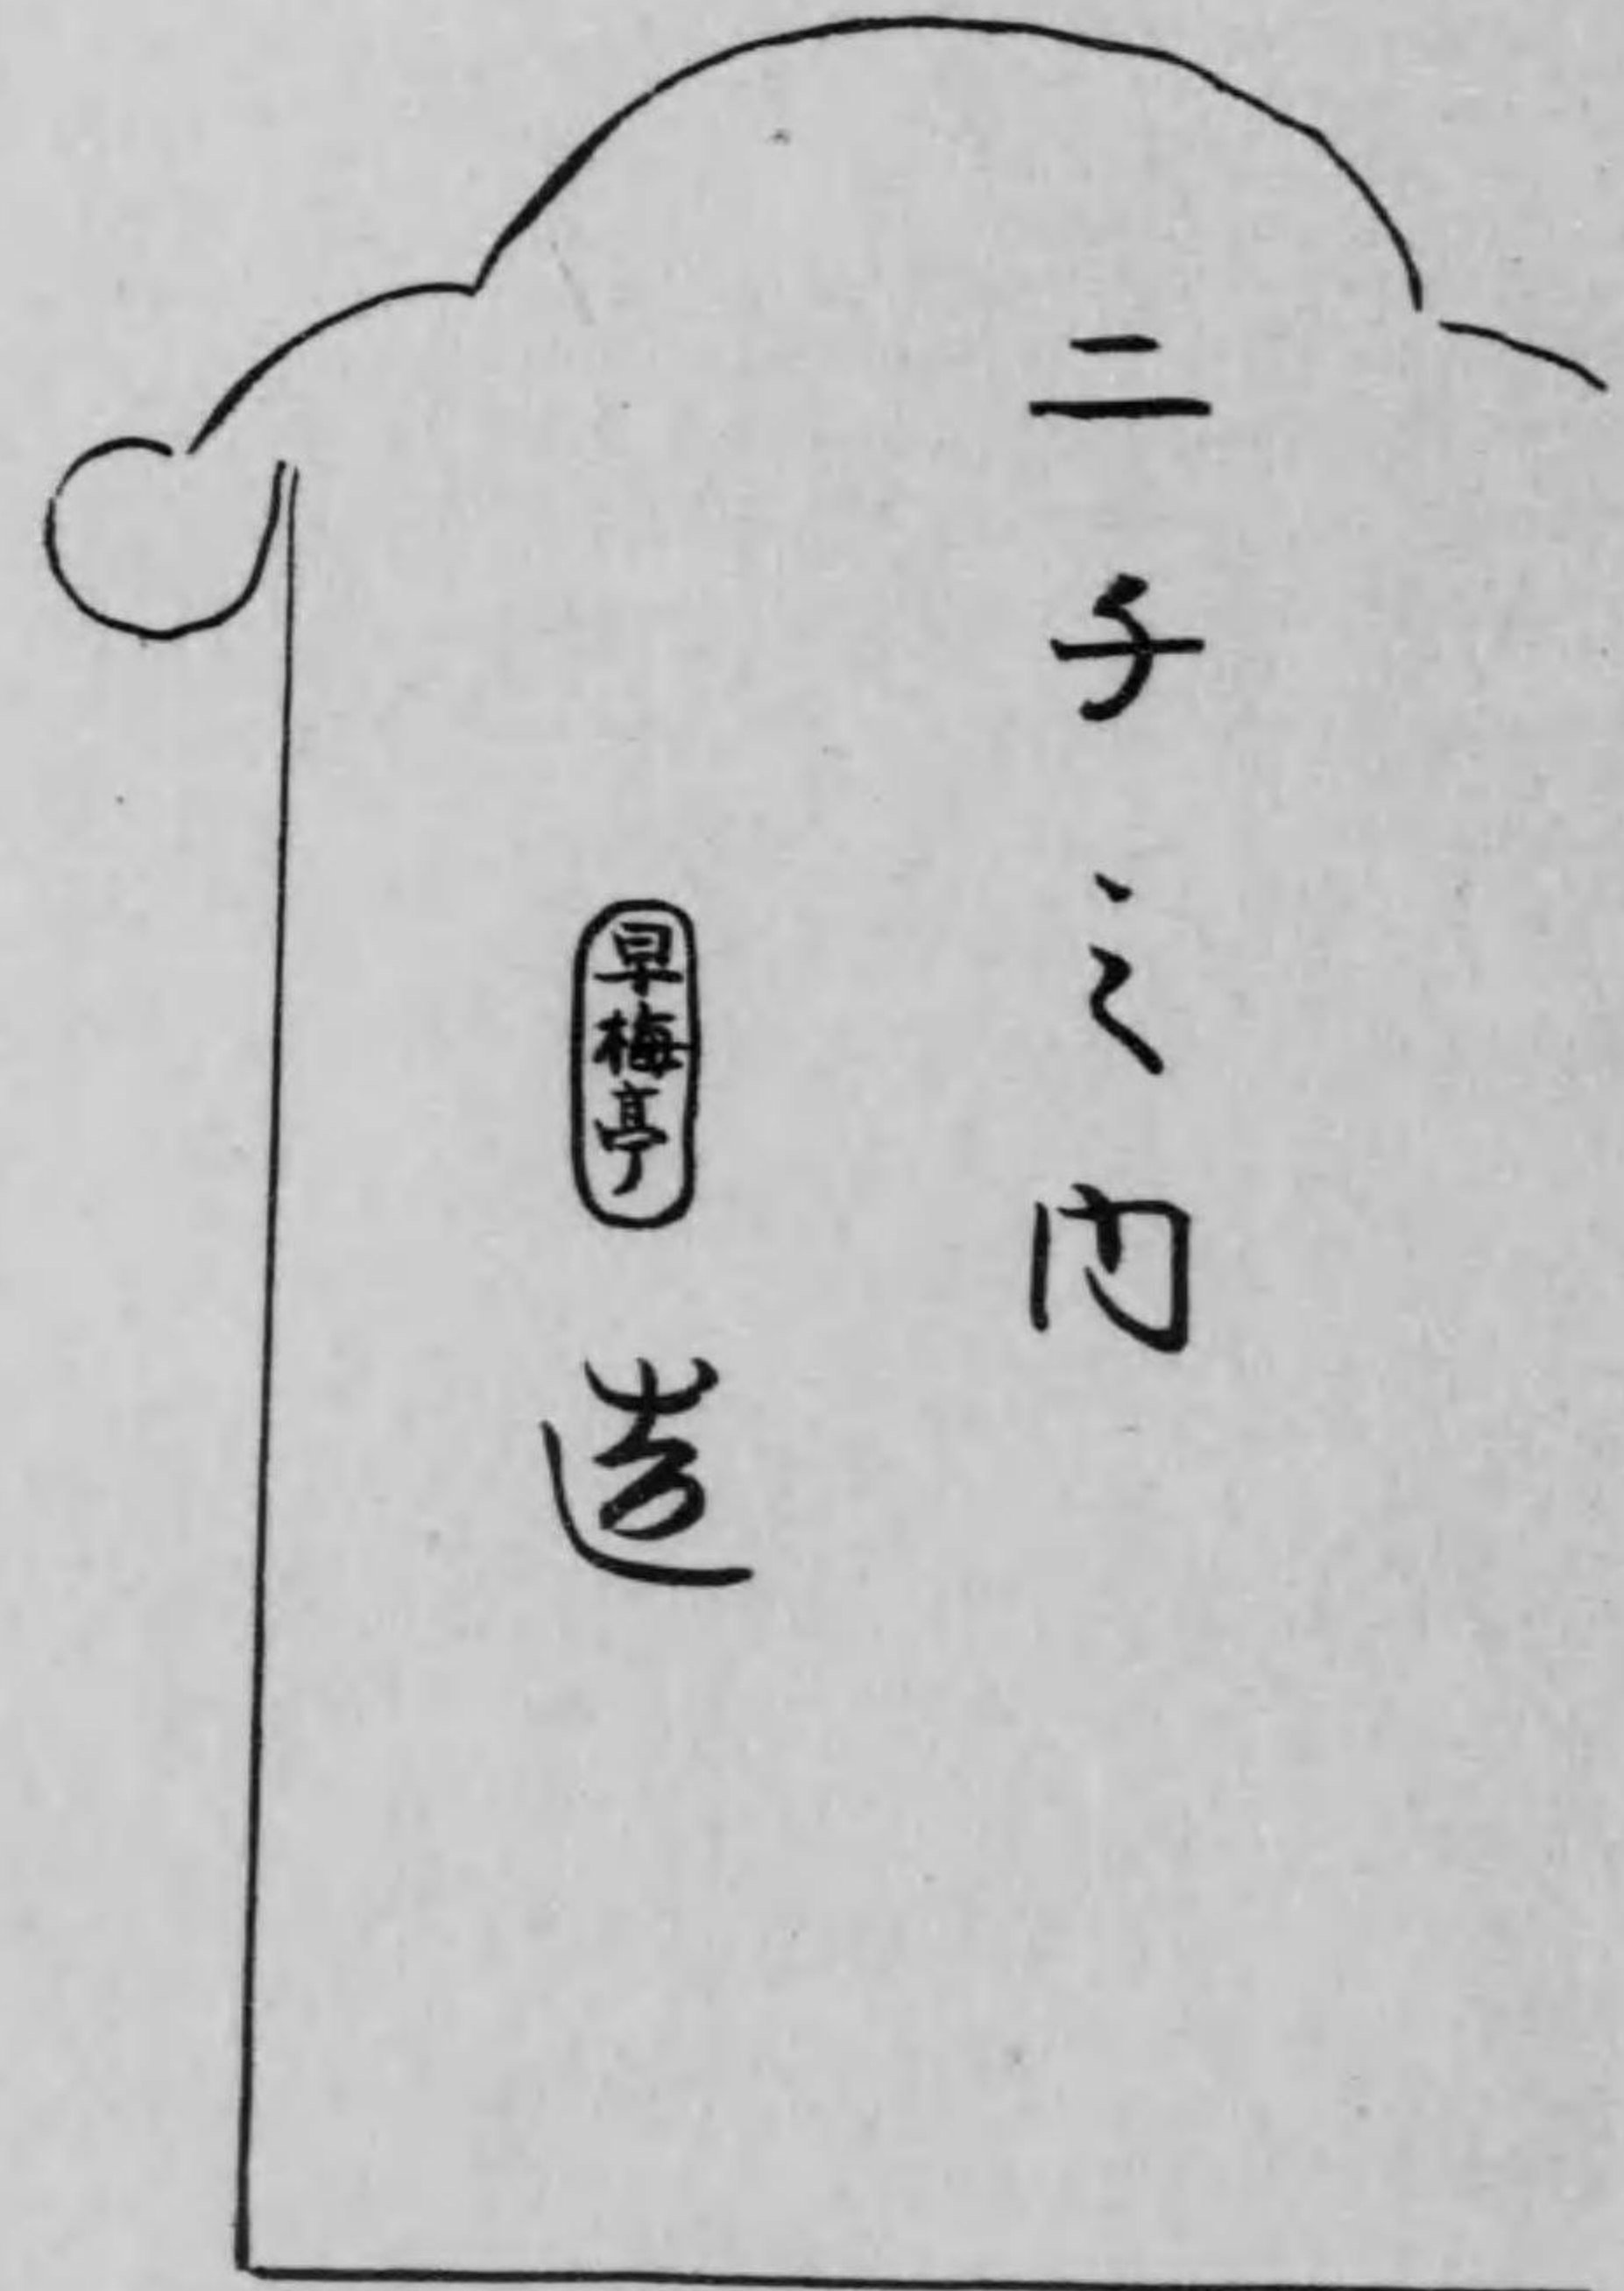 二子之内
早梅亭造